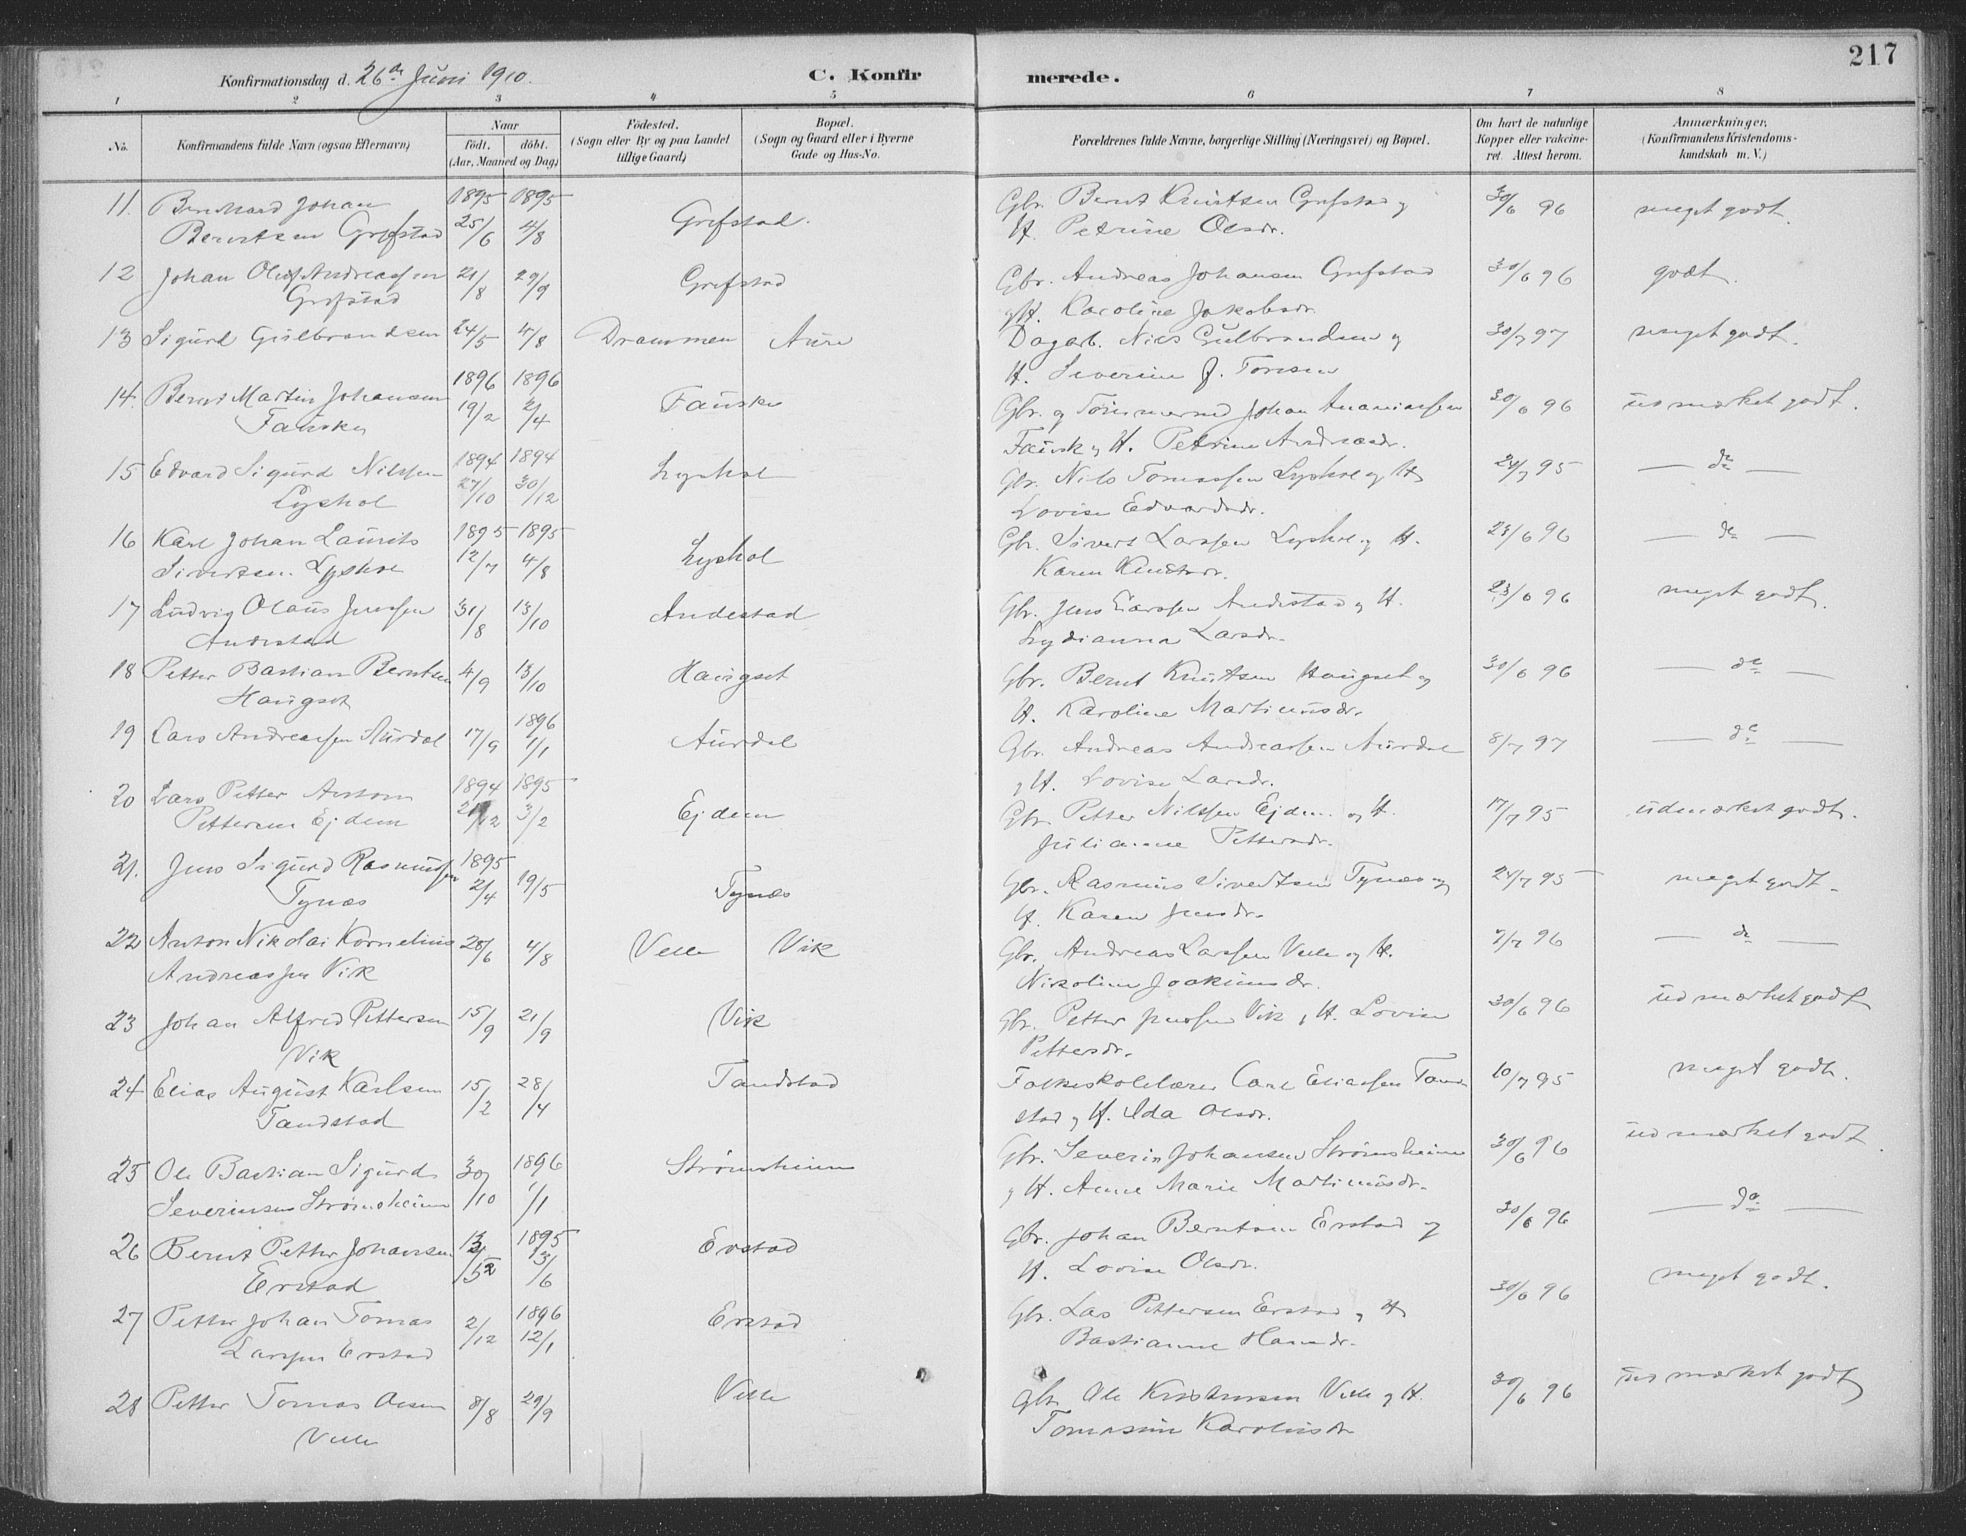 217
Konfirmationsdag d. 26de Juni 1910.
C. Konfirmerede.
1 2 3 4 5 6 7 8
No. Konfirmandens fulde Navn (ogsaa Efternavn) Naar födt. döbt. (Aar, Maaned og Dag) Födested. (Sogn eller By og paa Landet tillige Gaard) Bopæl. (Sogn og Gaard eller i Byerne Gade og Hus-No. Forældrenes fulde Navne, borgerlige Stilling (Næringsvei) og Bopæl. Om havt de naturlige Kopper eller vakcineret. Attest herom. Anmærkninger. (Konfirmandens Kristendomskundskab m. V.)
11. Bernhard Johan 1895 1895 Gbr. Bernt Knutsen Grefstad og 30/6 96 meget godt.
Berntsen Grefstad 25/6 4/8 Grefstad. H. Petrine Olsdr.
12 Johan Oluf Andreassen 21/8 29/9 Grefstad Gbr. Andreas Johansen Grefstad 30/6 96 godt.
Grefstad g H. Karoline Jakobsdr.
13 Sigurd Gulbrandsen 24/5 4/8 Drammen Aure Dagarb. Nils Gulbrandsen og 30/7 97 meget godt.
H. Severine J. Toresen
14. Bernt Martin Johansen 1896 19/2 1896 2/4 Fauske Gbr. og Tömmermd Johan Ananiassen 30/6 96 udmærket godt.
Fauske Fausk og H. Petrine Andreasdr.
15 Edvard Sigurd Nilssen 1894 27/10 1894 30/12 Lyshol Gbr. Nils Tomassen Lyshol og H 24/7 95 — do —
Lyshol Lovise Edvardsdr.
16 Karl Johan Laurits 1895 1895 Gbr. Sivert Larssen Lyshol og H. 23/6 96 — do —
Sivertsen Lyshol 12/7 4/8 Lyshol Karen Knutsdr.
17 Ludvig Olaus Jenssen 31/8 13/10 Andestad Gbr. Jens Larssen Andestad og H. 23/6 96 meget godt.
Andestad Lydianna Larsdr.
18 Petter Bastian Berntsen 4/9 13/10 Haugset Gbr. Bernt Knutsen Haugset og 30/6 96 — do —
Haugset H. Karoline Martinusdr.
19 Lars Andreassen Aurdal 17/9 1896 1/1 Aurdal Gbr. Andreas Andreassen Aurdal 8/7 97 — do —
og H. Lovise Larsdr.
20 Lars Petter Antom 1894 1895 Gbr. Petter Nilssen Ejdem og H. 17/7 95 udmærket godt.
Pettersen Ejdem /12 3/2 Ejdem Julianne Pettersdr.
21. Jens Sigurd Rasmussen 1895 2/4 19/5 Tynæs Gbr. Rasmus Sivertsen Tynæs og 24/7 95 meget godt.
Tynæs H. Karen Jensdr.
22 Anton Nikolai Kornelius 28/6 4/8 Velle Vik Gbr. Andreas Larssen Velle og H. 7/7 96 — do —
Andreassen Vik Nikoline Joakimsdr.
23 Johan Alfred Pettersen 15/9 21/9 Vik Gbr. Petter Jenssen Vik og H. Lovise 30/6 96 udmærket godt
Vik Pettersdr.
24 Elias August Karlsen 15/2 28/4 Tandstad Folkeskolelærer Carl Eliassen Tand 10/7 95 meget godt.
Tandstad stad og H. Ida Olsdr.
25 Ole Bastian Sigurd 30/10 1896 1/1 Strömsheim Gbr. Severin Johansen Strömsheim 30/6 96 udmærket godt
Severinsen Strömsheim og H. Anne Marie Martinusdr.
26 Bernt Petter Johansen 1895 13/6 Erstad Gbr. Johan Berntsen Erstad og 30/6 96 — do —
Erstad H. Lovise Olsdr.
27 Petter Johan Tomas 2/12 1896 12/1 Erstad Gbr. Las Pettersen Erstad og H 30/6 96 meget godt.
Larssen Erstad Bastianne Hansdr.
28 Petter Tomas Olsen 8/8 29/9 Velle Gbr. Ole Kristensen Velle og H. 30/6 96 udmærket godt
Velle Tomasine Karolusdr